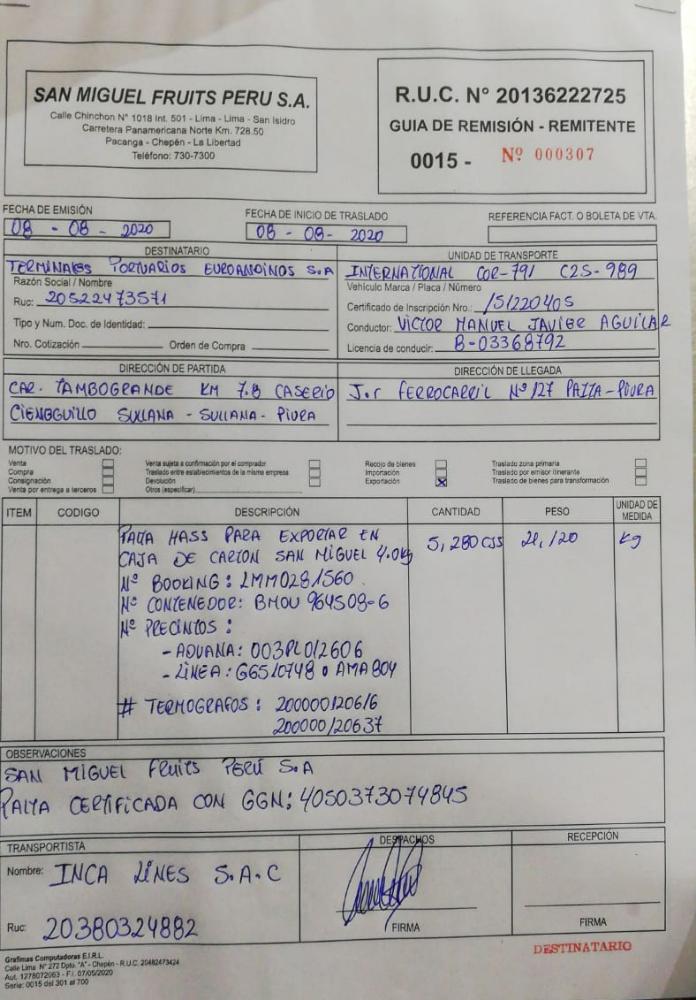 SAN MIGUEL FRUITS PERU S.A.
Calle Chinchon N° 1018 Int. 501 - Lima - Lima - San Isidro
Carretera Panamericana Norte Km. 728.50
Pacanga - Chepén - La Libertad
Teléfono: 730-7300
R.U.C. N° 20136222725
GUIA DE REMISIÓN - REMITENTE
0015 - Nº 000307
FECHA DE EMISIÓN
08 - 08 - 2020
FECHA DE INICIO DE TRASLADO
08 - 08 - 2020
REFERENCIA FACT. O BOLETA DE VTA.
DESTINATARIO
TERMINALES PORTUARIOS EUROANDINOS S.A
Razón Social / Nombre
Ruc: 20522473571
Tipo y Num. Doc. de Identidad:
Nro. Cotización Orden de Compra
UNIDAD DE TRANSPORTE
INTERNATIONAL COR-791 C2S-989
Vehículo Marca / Placa / Número
Certificado de Inscripción Nro.: 151220405
Conductor: VICTOR MANUEL JAVIER AGUILAR
Licencia de conducir: B-03368792
DIRECCIÓN DE PARTIDA
CAR. TAMBOGRANDE KM 7.8 CASERIO
CIENEGUILLO SULLANA - SULLANA - PIURA
DIRECCIÓN DE LLEGADA
J.r FERROCARRIL Nº 127 PAITA - PIURA
MOTIVO DEL TRASLADO:
Venta
Compra
Consignación
Venta por entrega a terceros
Venta sujeta a confirmación por el comprador
Traslado entre establecimientos de la misma empresa
Devolución
Otros (especificar)
Recojo de bienes
Importación
Exportación X
Traslado zona primaria
Traslado por emisor itinerante
Traslado de bienes para transformación
ITEM CODIGO DESCRIPCIÓN CANTIDAD PESO UNIDAD DE MEDIDA
PALTA HASS PARA EXPORTAR EN
CAJA DE CARTON SAN MIGUEL 4.0kg 5,280 CJS 21,120 kg
Nº BOOKING: LMM0281560
Nº CONTENEDOR: BMOU 964508-6
Nº PRECINTOS:
- ADUANA: 003PL012606
- LÍNEA: G6510748 AMA804
# TERMOGRAFOS: 2000001206/6
200000120637
OBSERVACIONES
SAN MIGUEL FRUITS PERÚ S.A
PALTA CERTIFICADA CON GGN: 4050373074845
TRANSPORTISTA
Nombre: INCA LINES S.A.C
Ruc: 20380324882
DESPACHOS
FIRMA
RECEPCIÓN
FIRMA
DESTINATARIO
Grafimas Computadoras E.I.R.L.
Calle Lima N° 272 Dpto. "A" - Chepén - R.U.C. 20482473424
Aut. 1278072063 - F.I. 07/05/2020
Serie: 0015 del 301 al 700